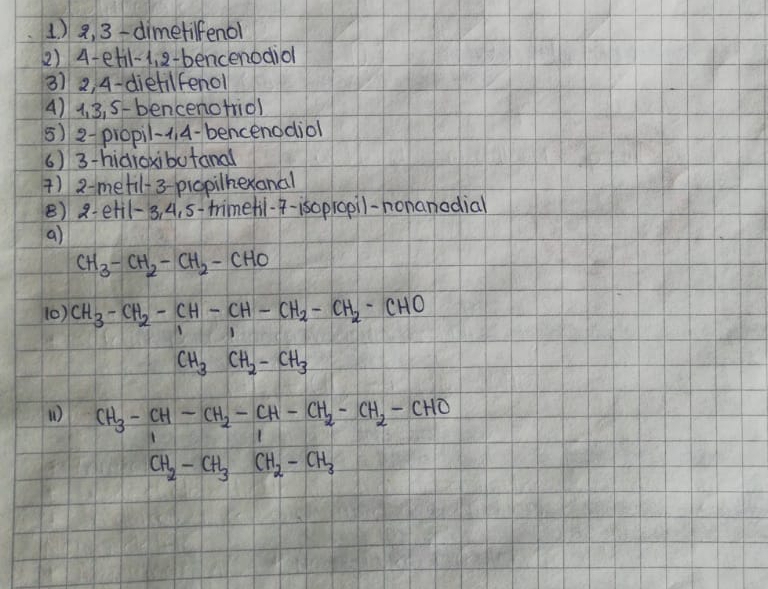 1.) 2,3-dimetilfenol
2) 4-etil-1,2-bencenodiol
3) 2,4-dietilfenol
4) 1,3,5-bencenotriol
5) 2-propil-1,4-bencenodiol
6) 3-hidroxibutanal
7) 2-metil-3-propilhexanal
8) 2-etil-3,4,5-trimetil-7-isopropil-nonanodial
9)
CH₃-CH₂-CH₂-CHO
10) CH₃-CH₂-CH-CH-CH₂-CH₂-CHO
CH₃ CH₂-CH₃
11) CH₃-CH-CH₂-CH-CH₂-CH₂-CHO
CH₂-CH₃ CH₂-CH₃